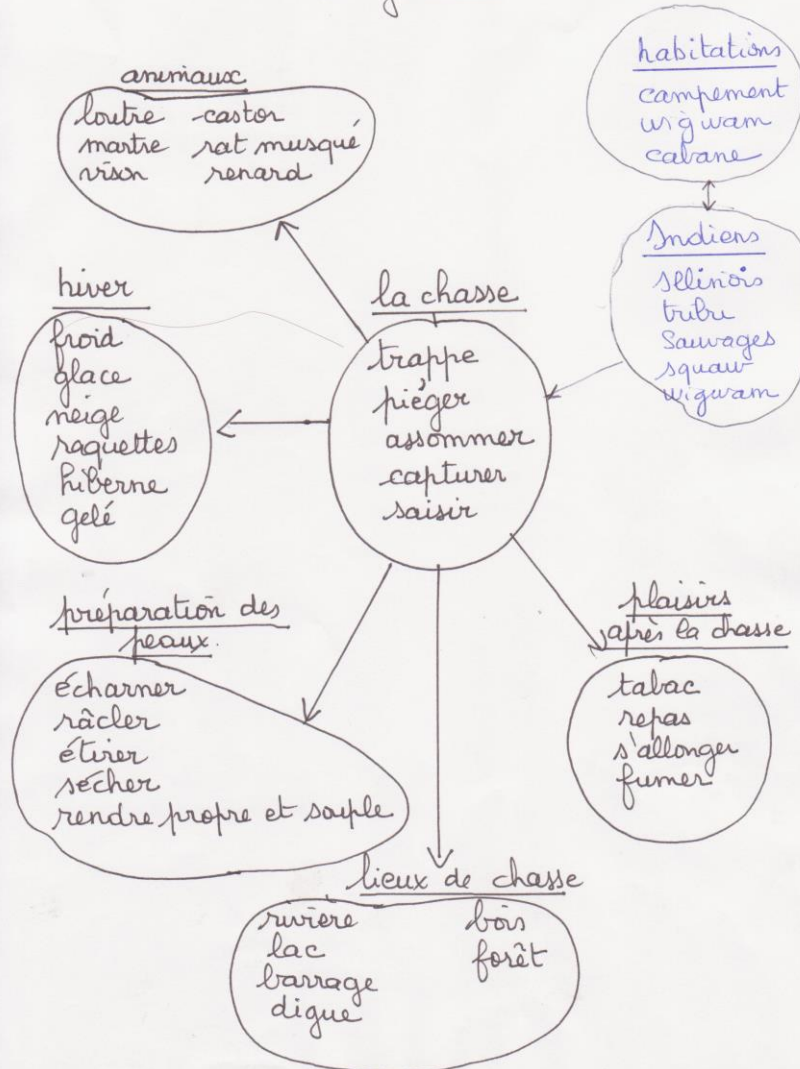 animaux
loutre castor
martre rat musqué
vison renard
habitations
campement
wigwam
cabane
Indiens
Illinois
tribu
Sauvages
squaw
wigwam
hiver
froid
glace
neige
raquettes
hiberne
gelé
la chasse
trappe
piéger
assommer
capturer
saisir
préparation des
peaux.
écharner
râcler
étirer
sécher
rendre propre et souple
plaisirs
après la chasse
tabac
repas
s'allonger
fumer
lieux de chasse
rivière bois
lac forêt
barrage
digue